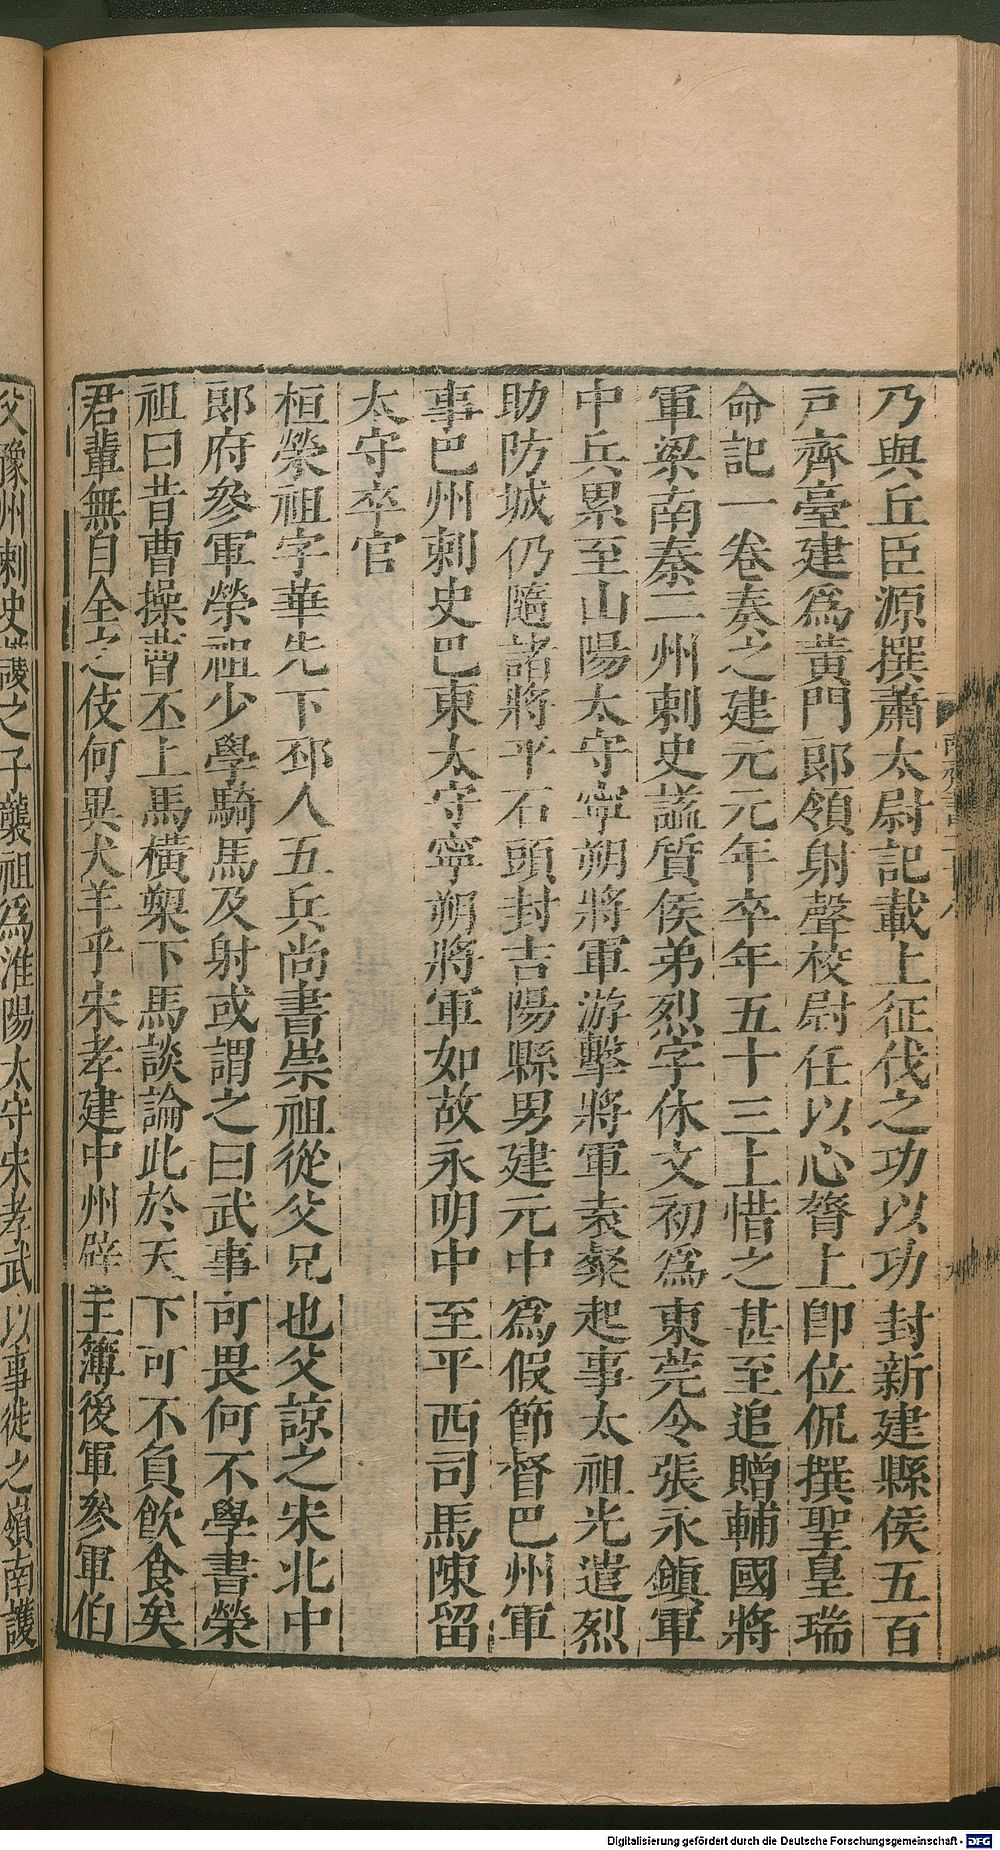 乃與丘臣源撰蕭太尉記載上征伐之功以功封新建縣侯五百
戸齊臺建爲黃門郎領射聲校尉任以心膂上卽位侃撰聖皇瑞
命記一卷奏之建元元年卒年五十三上惜之甚至追贈輔國將
軍梁南秦二州刺史諡質侯弟烈字休文初爲東莞令張永鎭軍
中兵累至山陽太守寧朔將軍游擊將軍袁粲起事太祖先遣烈
助防城仍隨諸將平石頭封吉陽縣男建元中爲假節督巴州軍
事巴州刺史巴東太守寧朔將軍如故永明中至平西司馬陳留
太守卒官
桓榮祖字華先下邳人五兵尚書崇祖從父兄也父諒之宋北中
郎府參軍榮祖少學騎馬及射或謂之曰武事可畏何不學書榮
祖曰昔曹操曹丕上馬橫槊下馬談論此於天下可不負飮食矣
君輩無自全之伎何異犬羊乎宋孝建中州辟主簿後軍參軍伯
父豫州刺史護之子襲祖爲淮陽太守宋孝武以事徙之嶺南護
Digitalisierung gefördert durch die Deutsche Forschungsgemeinschaft - DFG